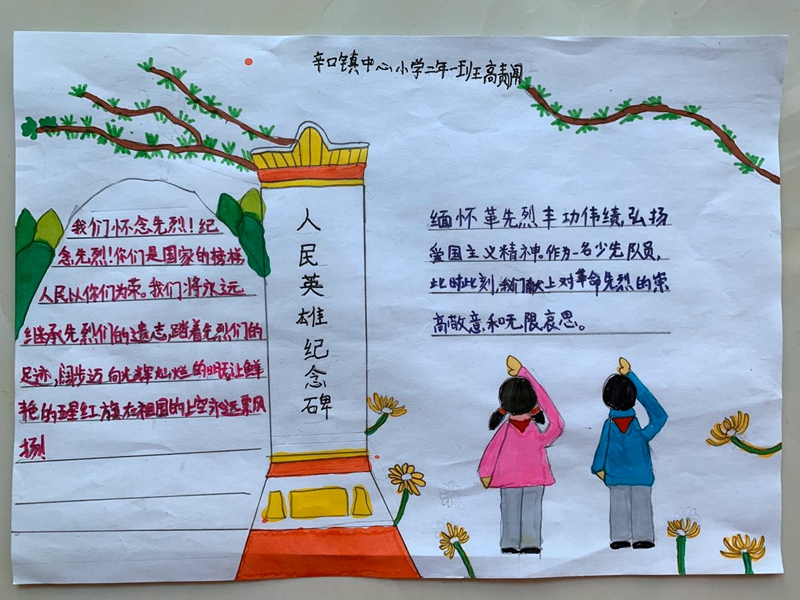 辛口镇中心小学二年一班王高
我们怀念先烈！纪
念先烈！你们是国家的榜样，
人民以你们为荣。我们将永远
继承先烈们的遗志，踏着先烈们的
足迹，阔步迈向光辉灿烂的明天，让鲜
艳的五星红旗在祖国的上空永远飘风
扬！
人民英雄纪念碑
缅怀革先烈丰功伟绩，弘扬
爱国主义精神。作为一名少先队员，
此时此刻，我们献上对革命先烈的崇
高敬意和无限哀思。